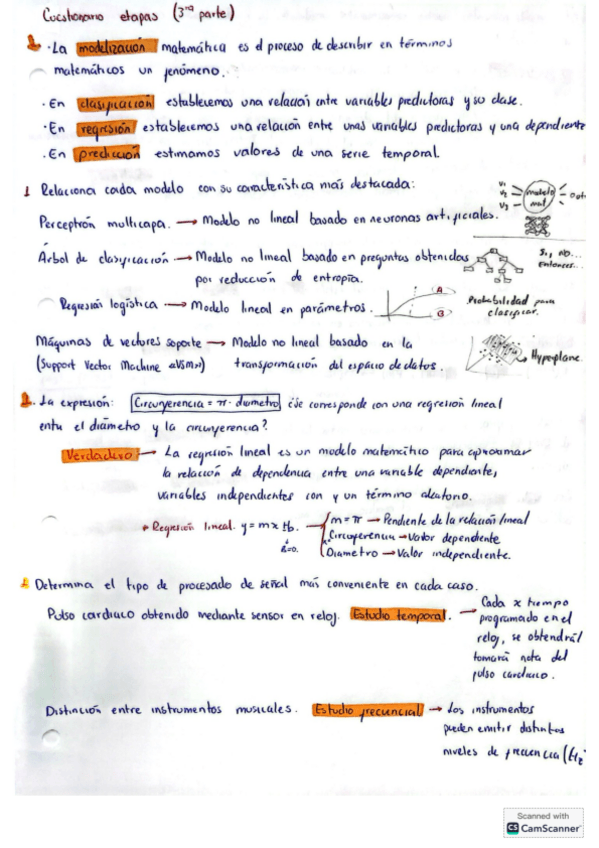 Cuestionario etapas (3ra parte)
· La modelización matemática es el proceso de describir en términos
matemáticos un fenómeno.
· En clasificación establecemos una relación entre variables predictoras y su clase.
· En regresión establecemos una relación entre unas variables predictoras y una dependiente
· En predicción estimamos valores de una serie temporal.
1 Relaciona cada modelo con su característica más destacada:
V1
V2
V3
modelo
Perceptrón multicapa. → Modelo no lineal basado en neuronas artificiales.
Árbol de clasificación → Modelo no lineal basado en preguntas obtenidas
por reducción de entropía.
Si, NO...
Entonces...
Regresión logística → Modelo lineal en parámetros.
A
B
Probabilidad para
clasificar.
Máquinas de vectores soporte → Modelo no lineal basado en la
(Support Vector Machine transformación del espacio de datos.
Hyperplane
1. La expresión: Circunferencia = π · diametro ¿se corresponde con una regresión lineal
entre el diámetro y la circunferencia?
Verdadero → La regresión lineal es un modelo matemático para aproximar
la relación de dependencia entre una variable dependiente,
variables independientes con y un término aleatorio.
* Regresión lineal. y = mx + b.
B=0.
m = π → Pendiente de la relación lineal
Circunferencia → Valor dependiente
Diametro → Valor independiente.
Determina el tipo de procesado de señal más conveniente en cada caso.
Pulso cardiaco obtenido mediante sensor en reloj. Estudio temporal. → Cada x tiempo
programado en el
reloj, se obtendrá/
tomará nota del
pulso cardiaco.
Distinción entre instrumentos musicales. Estudio frecuncial → Los instrumentos
pueden emitir distintos
niveles de frecuencia (Hz
Scanned with
CS CamScanner